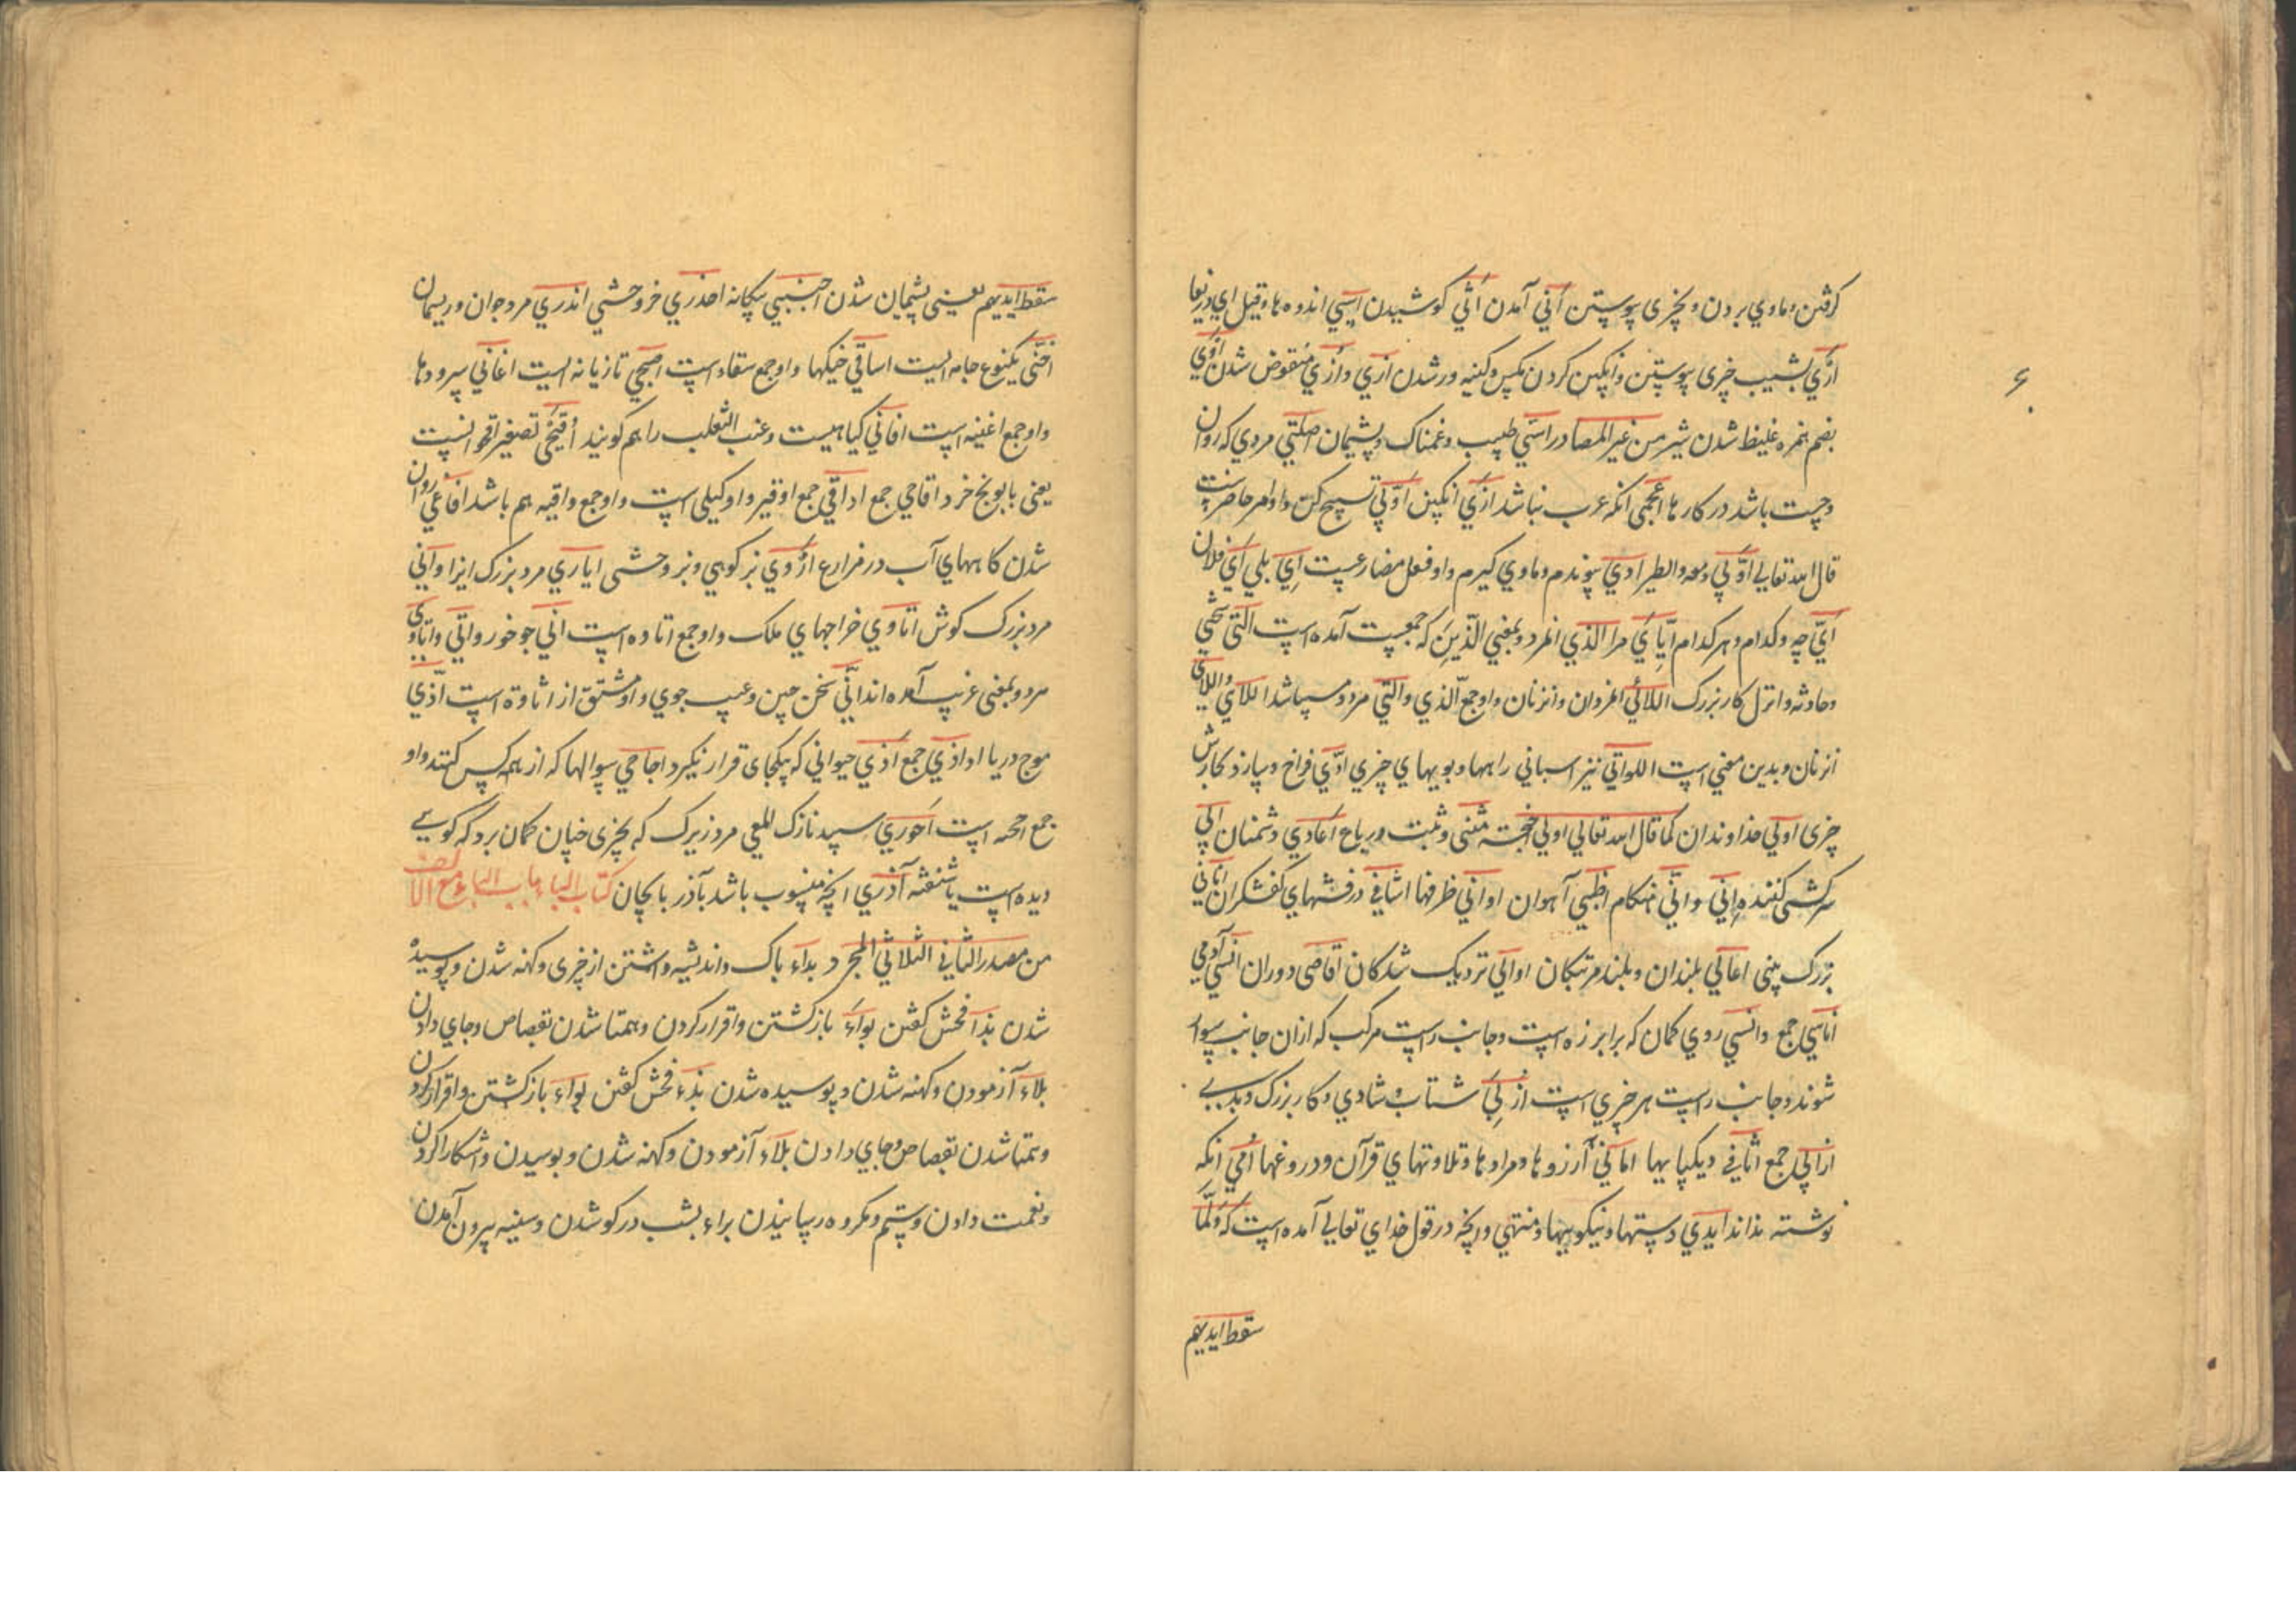 گرفتن و ماوي بردن و بچزی پیوستن أتي آمدن أثي کوشیدن اسي اندوه ها و قیل اي دریغا
ارّي بشیب چیزی پیوستن و انگبین کردن مگس و کینه ور شدن ازي و ازي منقوض شدن
بضم همزه غلیظ شدن شیر من غیر المصادر اسي طبیب و غمناک و پشیمان اصلتي مردي که روان
و چست باشد در کارها اعجمي انکه عرب نباشد ازي انکبین اوّبي تسبیح کن و او امر حاضر است
قال الله تعالی اوّبي معه و الطیر اوي پیوندم و ماوي گیرم و او فعل مضارعست اي بلي أي فلان
أيّ چه و کدام و هر کدام إيّاي مرا الذي انمرد و بمعني الّذین که جمعیست آمده است التي سختي
و حادثه و انزل کار بزرک اللائي انمردان و انزنان و او جمع الّذي و التي مر دو میباشد اللاي و اللاتي
انزنان و بدین معني است اللواتي نیز اسباني راهها و بویهاي چیزي ادّي فراخ و سازد کارش
چیزی اولي خداوندان کما قال الله تعالی اولي اجنحة مثنی و ثلث و رباع اعادي دشمنان ابي
سرکشی کننده اني و انّي هنکام اظبي آهوان اواني ظرفها اشافي درفشهاي کفشکران انافي
بزرک بیني اعالي بلندان و بلند مرتبکان اوالي نزدیک شدکان اقاصي دوران انسي آدمي
اناسي جمع و انسي روي کمان که برابر زه است و جانب راست مرکب که ازان جانب سوار
شوند و جانب راست هر چیزي است ازبي شتاب و شادي و کار بزرک و بدیي
ازابي جمع اثافي دیکپایها اماني آرزوها و مرادها و تلاوتهاي قرآن و دروغها امّي انکه
نوشته نداند ایدي دستها و نیکوییها و منتهي و انچه در قول خداي تعالی آمده است که و لمّا
سقط ایدیهم
سقط ایدیهم یعني پشیمان شدن اجنبي بیکانه اخذري خر وحشي اندري مرد جوان و ریسمان
اخنّي یکنوع جامه ایست اساقي خیکها و او جمع سقاء است اصبحي تازیانه ایست اغاني سرودها
و او جمع اغنیه است افاني کیاهیست و عنب الثعلب را هم کویند أقیحيّ تصغیر اقحوانست
یعنی بابونج خرد اقاحي جمع اواقي جمع اوقیه و او کیلی است و او جمع واقیه هم باشد افاعي روان
شدن کاههاي آب در مزارع ارّوي بز کوهي و بز وحشي ایاري مرد بزرک ایزا و آني
مرد بزرک کوش اتاوي خراجهاي ملک و او جمع اتاوه است اني جو خور و اتي و اتاوي
مرد و بمعنی غریب آمده اند انّي سخن چین و عیب جوي و او مشتق از اثاوة است آذّي
موج دریا اواذي جمع أذي حیواني که بیکجای قرار نکیرد اجاحي سوالها که از همه کس کنند و او
جمع احجیه است احوري سپید نازک المعي مرد زیرک که بچیزی چنان کمان برد که کویي
دیده است یا شنفته آذري انچه منسوب باشد بآذربایجان کتاب الباء باب الباء مع الالف
من مصدر الثاني الثلاثي المجرد بداء باک و اندیشه داشتن از چیزی و کهنه شدن و پوسیده
شدن بذا فحش کفتن بواء باز کشتن و اقرار کردن و همتا شدن بقصاص و جاي دادن
بلاء آزمودن و کهنه شدن و پوسیده شدن بذاء فحش کفتن بواء باز کشتن و اقرار کردن
و همتا شدن بقصاص و جاي دادن بلاء آزمودن و کهنه شدن و پوسیدن و اشکارا کردن
و نعمت دادن و ستم و مکروه رسانیدن براء بشب در کو شدن و سینه بیرون آمدن